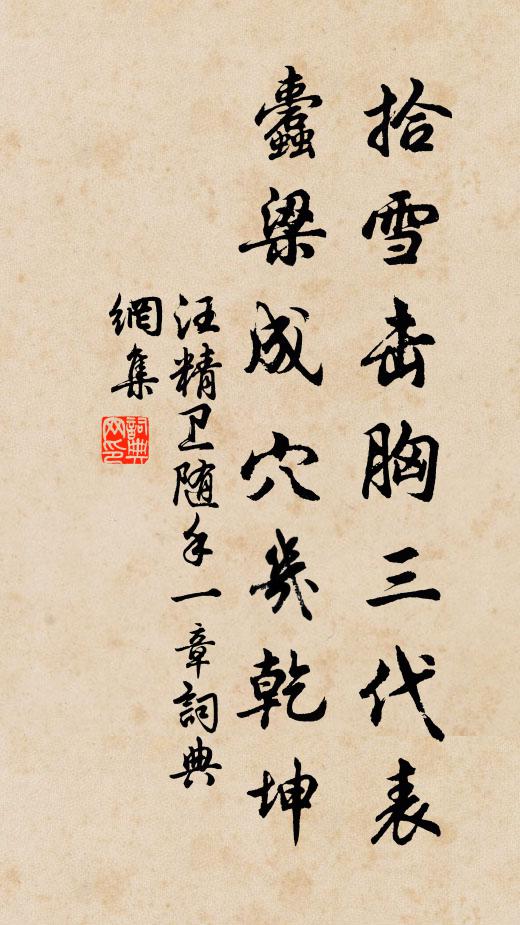 拾雪击胸三代表
蠹梁成穴几乾坤
汪精卫随手一章詞典
網集
詞典
网印